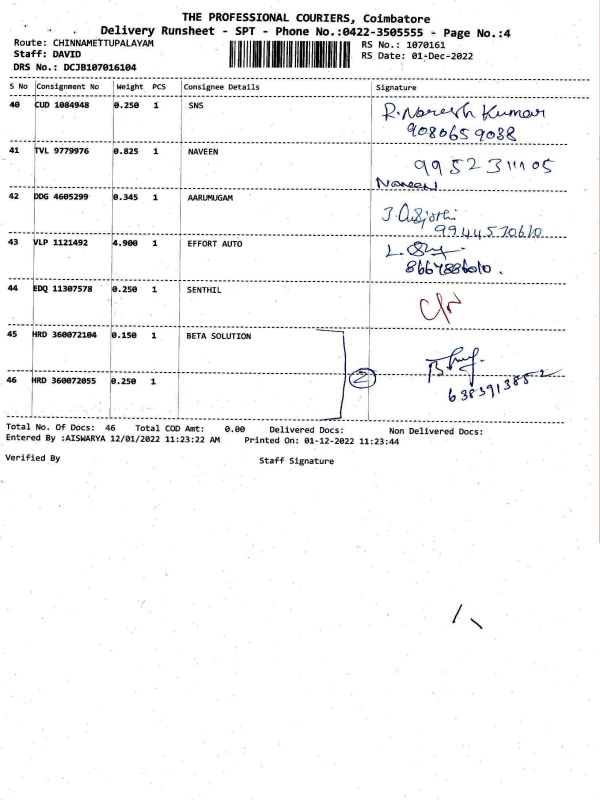 THE PROFESSIONAL COURIERS, Coimbatore
Delivery Runsheet - SPT - Phone No.:0422-3505555 - Page No.:4
Route: CHINNAMETTUPALAYAM RS No.: 1070161
Staff: DAVID RS Date: 01-Dec-2022
DRS No.: DCJB107016104
S No Consignment No Weight PCS Consignee Details Signature
40 CUD 1084948 0.250 1 SNS R. Naresh Kumar
9080659038
41 TVL 9779976 0.825 1 NAVEEN 9952311105
Naveen
42 DDG 4605299 0.345 1 AARUMUGAM
9944570610
43 VLP 1121492 4.900 1 EFFORT AUTO
44 EDQ 11307578 0.250 1 SENTHIL
45 HRD 360072104 0.150 1 BETA SOLUTION
2
46 HRD 360072055 0.250 1 6383913852
Total No. Of Docs: 46 Total COD Amt: 0.00 Delivered Docs: Non Delivered Docs:
Entered By :AISWARYA 12/01/2022 11:23:22 AM Printed On: 01-12-2022 11:23:44
Verified By Staff Signature